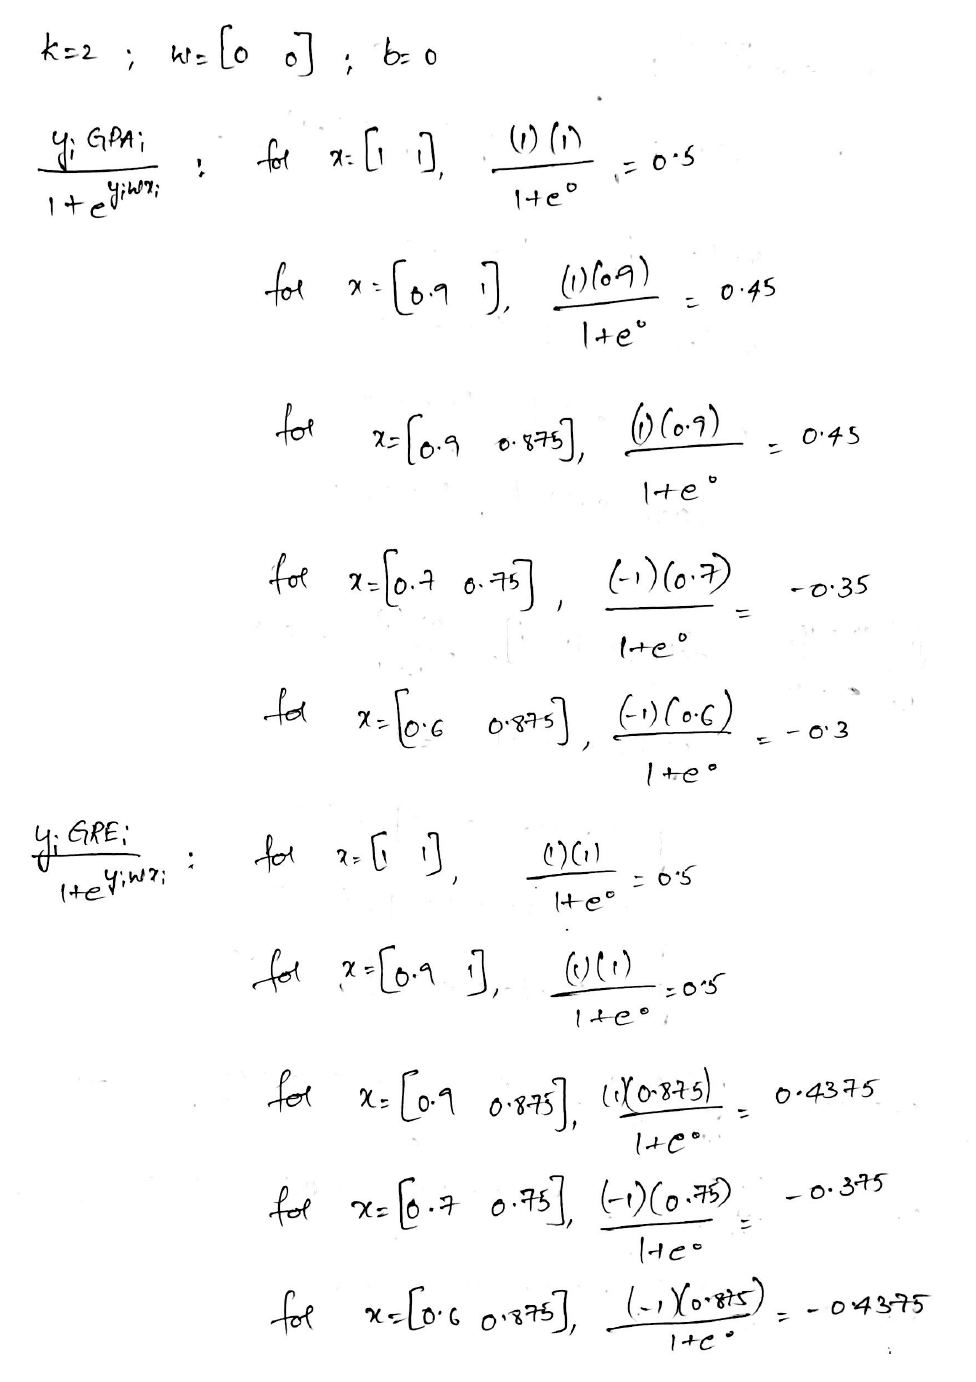 k=2 ; w=[0 0] ; b=0
y_i GPA_i / 1+e^{y_i w x_i} : for x=[1 1], (1)(1) / 1+e^0 = 0.5
for x=[0.9 1], (1)(0.9) / 1+e^0 = 0.45
for x=[0.9 0.875], (1)(0.9) / 1+e^0 = 0.45
for x=[0.7 0.75], (-1)(0.7) / 1+e^0 = -0.35
for x=[0.6 0.875], (-1)(0.6) / 1+e^0 = -0.3
y_i GRE_i / 1+e^{y_i w x_i} : for x=[1 1], (1)(1) / 1+e^0 = 0.5
for x=[0.9 1], (1)(1) / 1+e^0 = 0.5
for x=[0.9 0.875], (1)(0.875) / 1+e^0 = 0.4375
for x=[0.7 0.75], (-1)(0.75) / 1+e^0 = -0.375
for x=[0.6 0.875], (-1)(0.875) / 1+e^0 = -0.4375